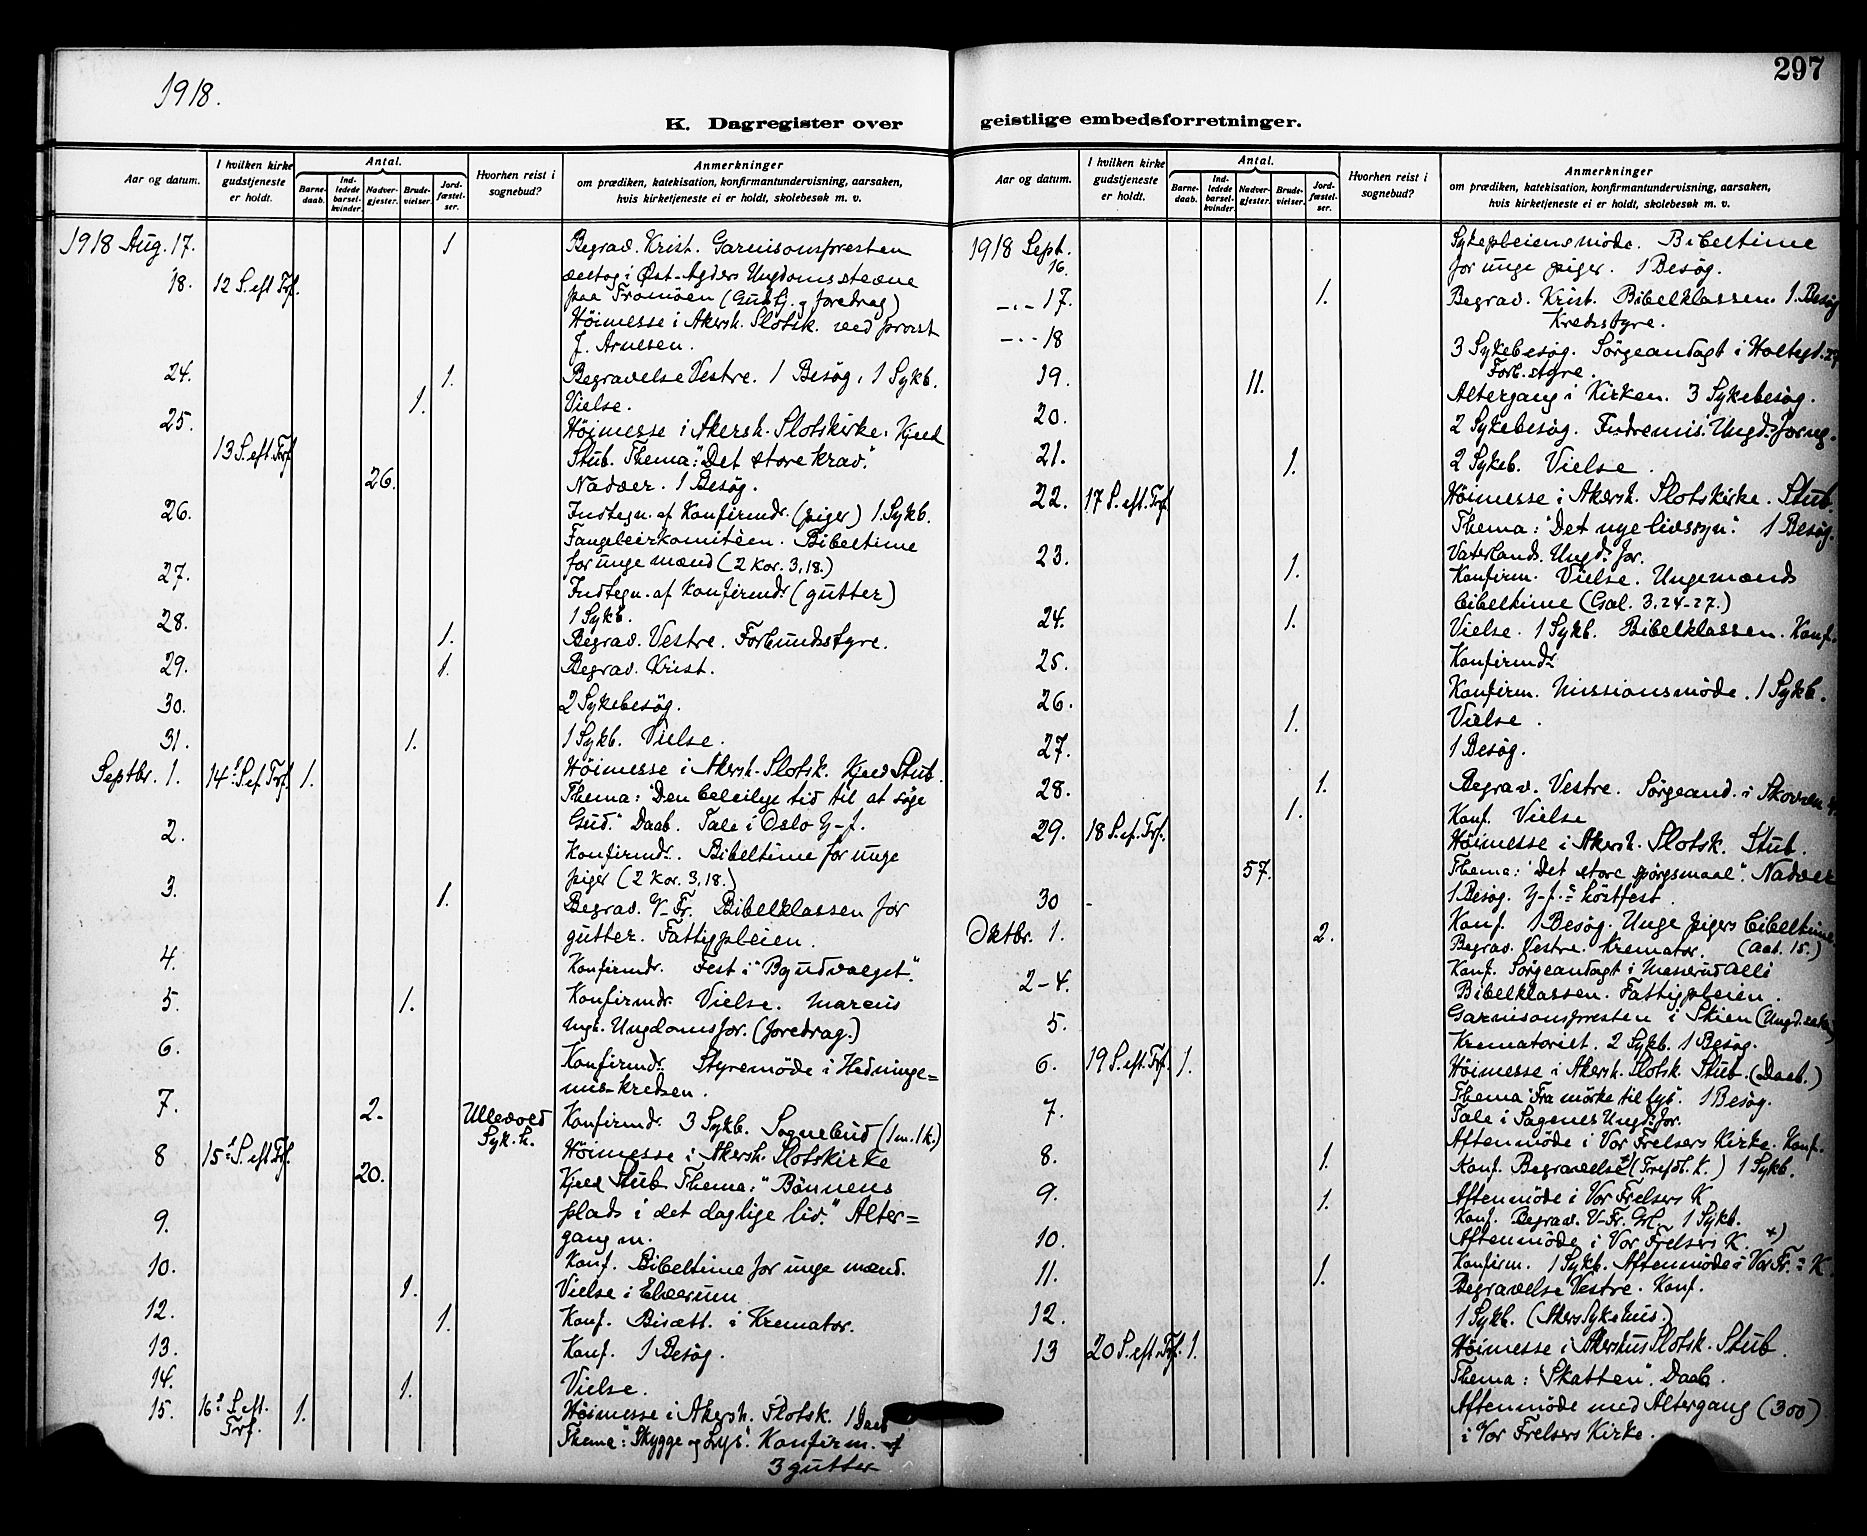 297
1918.
K. Dagregister over geistlige embedsforretninger.
Aar og datum.
I hvilken kirke gudstjeneste er holdt.
Antal.
Barne-daab.
Ind-ledede barsel-kvinder.
Nadver-gjester.
Brude-vielser.
Jord-fæstel-ser.
Hvorhen reist i sognebud?
Anmerkninger
om prædiken, katekisation, konfirmantundervisning, aarsaken,
hvis kirketjeneste ei er holdt, skolebesøk m. v.
1918 Aug. 17. 1 Begrav. Krist. Garnisonspresten
deltog i Øst-Agders Ungdomsstevne
18. 12 S. eft Trf. paa Tromöen (Gudstj. og foredrag)
Höimesse i Akersh. Slotsk. ved provst
J. Arnesen.
24. 1. Begravelse Vestre. 1 Besög. 1 Sykb.
1. Vielse.
25. Höimesse i Akersh. Slotskirke. Kjeld
13 S. eft. Trf. Stub. Thema: "Det store krav."
26. Nadver. 1 Besög.
26. Indtegn. af Konfirmdr. (piger) 1 Sykb.
Fangeleirkomitéen. Bibeltime
for unge mænd (2 Kor. 3,18.)
27. Indtegn. af Konfirmdr. (gutter)
1 Sykb.
28. 1. Begrav. Vestre. Forbundsstyre.
29. 1. Begrav. Krist.
30. 2 Sykebesög.
31. 1. 1 Sykb. Vielse.
Septbr. 1. 14. S. ef. Trf. 1. Höimesse i Akersh. Slotsk. Kjeld Stub.
Thema: "Den beleilige tid til at söge
Gud." Daab. Tale i Oslo Y-f.
2. Konfirmdr. Bibeltime for unge
piger (2 Kor. 3,18.)
3. 1. Begrav. V-Fr. Bibelklassen for
gutter. Fattigpleien.
4. Konfirmdr. Fest i "Byudvalget".
5. 1. Konfirmdr. Vielse. Marcus
Mgt. Ungdomsfor. (foredrag.)
6. Konfirmdr. Styremöde i Hedninge=
mis-kredsen.
7. 2. Ullevold Syk.h. Konfirmdr. 3 Sykb. Sognebud (1 m. 1 k.)
8 15. S. eft Trf. Höimesse i Akersh. Slotskirke
20. Kjeld Stub Thema: "Bönnens
plads i det daglige liv." Alter=
9. gang m.
Konf. Bibeltime for unge mænd.
10. 1. Vielse i Elverum
12. 1. Konf. Bisætt. i Kremator.
13. Konf. 1 Besög.
14. 1. Vielse.
15. 16. S. eft. Trf. 1. Höimesse i Akersh. Slotsk. 1 Daab
Thema: "Skygge og Lys". Konfirm. af
3 gutter
Aar og datum.
I hvilken kirke gudstjeneste er holdt.
Antal.
Barne-daab.
Ind-ledede barsel-kvinder.
Nadver-gjester.
Brude-vielser.
Jord-fæstel-ser.
Hvorhen reist i sognebud?
Anmerkninger
om prædiken, katekisation, konfirmantundervisning, aarsaken,
hvis kirketjeneste ei er holdt, skolebesøk m. v.
1918 Sept. 16. Sykepleiersmöde. Bibeltime
for unge piger. 1 Besög.
-„- 17. 1. Begrav. Krist. Bibelklassen. 1 Besög
Kredsstyre.
-„- 18 3 Sykebesög. Sörgeandagt i Holtegd.
Forb.styre.
19. 11. Altergang i Kirken. 3 Sykebesög.
20. 2 Sykebesög. Indremis. Ungd. foren.
21. 1. 2 Sykeb. Vielse.
22. 17 S. eft. Trf. Höimesse i Akersh. Slotskirke. Stub.
Thema: "Det nye livssyn." 1 Besög.
Vaterlands Ungd. for.
23. 1. Konfirm. Vielse. Ungemænds
bibeltime (Gal. 3,24-27.)
24. 1. Vielse. 1 Sykb. Bibelklassen. Konf.
25. Konfirmdr.
26. Konfirm. Missionsmöde. 1 Sykb.
1. Vielse.
27. 1 Besög.
28. 1. Begrav. Vestre. Sörgeand. i
1. Konf. Vielse
29. 18 S. ef. Trf. Höimesse i Akersh. Slotsk. Stub.
57. Thema: "Det store spörgsmaal". Nadver
1 Besög. Y-f.s höstfest.
30 - Konf. 1 Besög. Unge pigers bibeltime
Oktbr. 1. 2. Begrav. Vestre. Kremator. (Aab. 15.)
Konf. Sörgeandagt i Monserud Allé
2-4. Bibelklassen. Fattigpleien.
Garnisonspresten i Skien
5. Krematoriet. 2 Sykb. 1 Besög.
6. 19 S. eft. Trf. 1. Höimesse i Akersh. Slotsk. Stub. (Daab.)
Thema "Fra mörke til lys". 1 Besög.
7. Tale i Sagenes Ungd. for.
Aftenmöde i Vor Frelsers Kirke. Konf.
8. 1. Konf. Begravelse (Trefold. K.) 1 Sykb.
Aftenmöde i Vor Frelsers K.
9. 1. Konf. Begrav. V-Fr. Grl. 1 Sykb.
10. Aftenmöde i Vor Frelsers K. x)
Konfirm. 1 Sykb. Aftenmöde i Vor Fr.s K.
11. 1. Begravelse Vestre. Konf.
12. 1 Sykb. (Akers Sykehus.)
13 20 S. eft. Trf. 1. Höimesse i Akershus Slotsk. Stub.
Thema: "Skatten". Daab.
Aftenmöde med Altergang (300)
i Vor Frelsers Kirke.